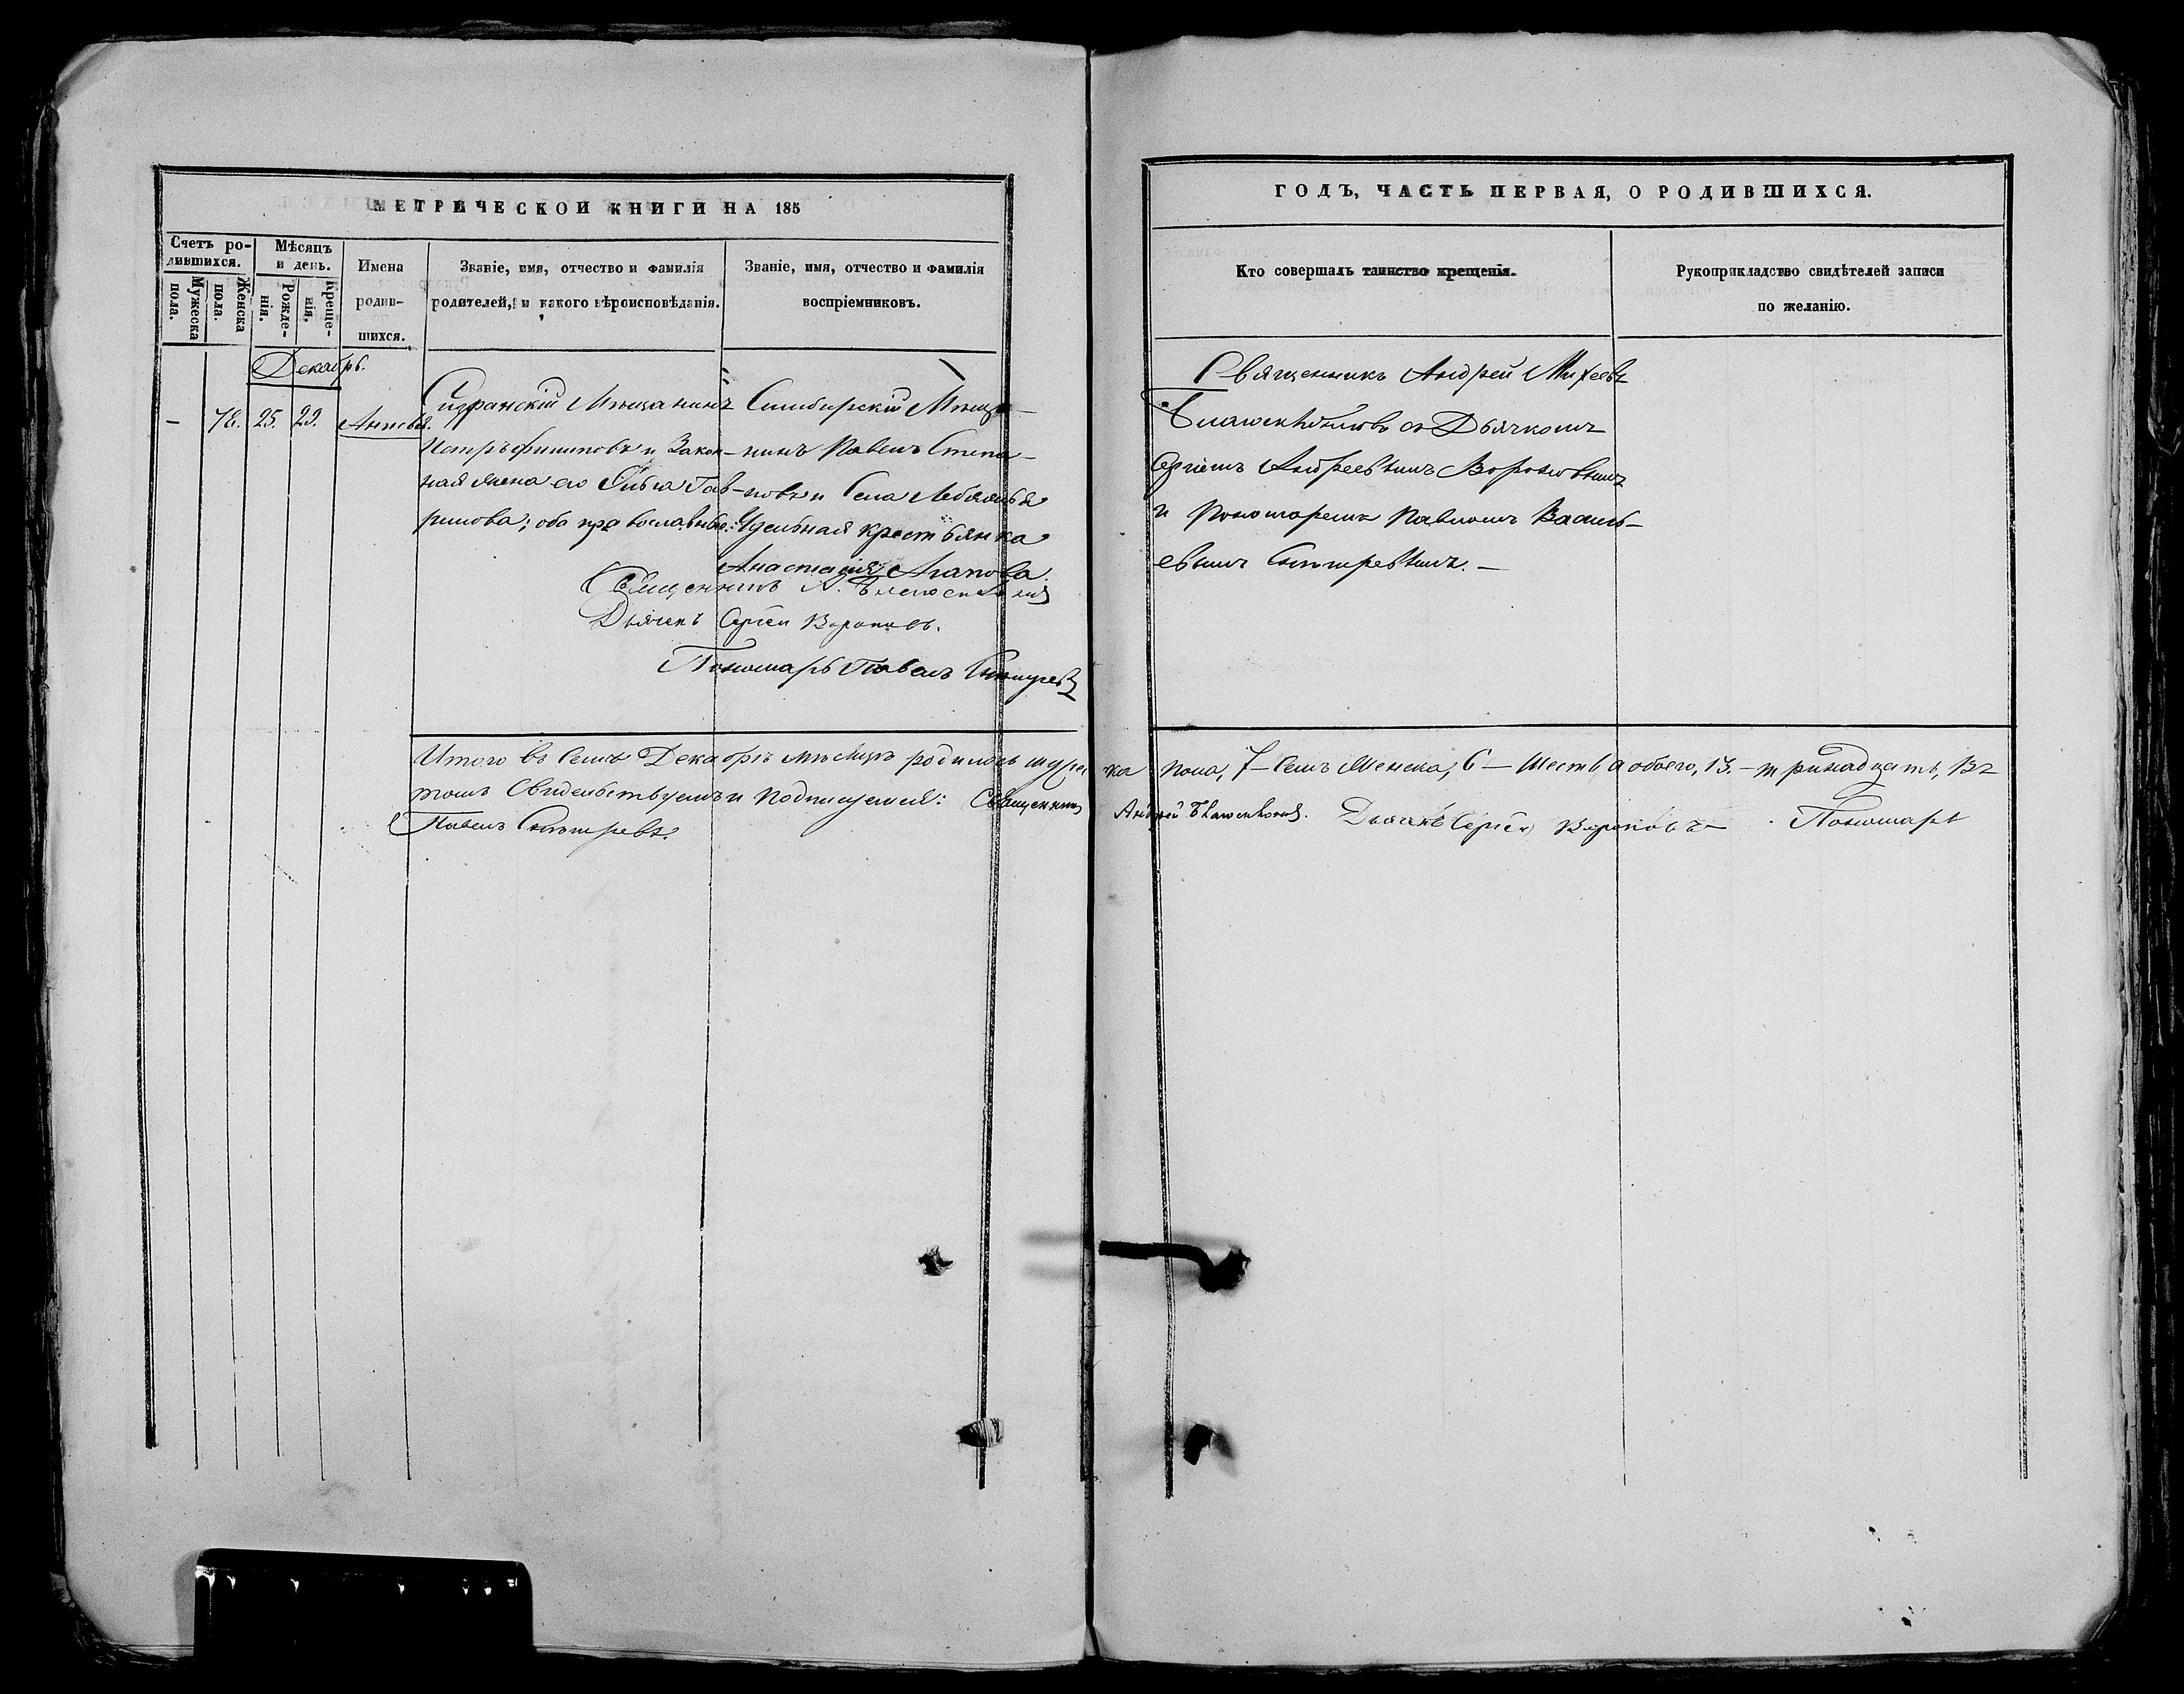 МЕТРИЧЕСКОЙ КНИГИ НА 185
ГОДЪ, ЧАСТЬ ПЕРВАЯ, О РОДИВШИХСЯ.
Счетъ ро-
дившихся.
Мужеска
пола.
Женска
пола.
Мѣсяцъ
и день.
Рожде-
нія.
Креще-
нія.
Имена
родив-
шихся.
Званіе, имя, отчество и фамилія
родителей, и какого вѣроисповѣданія.
Званіе, имя, отчество и фамилія
воспріемниковъ.
Кто совершалъ таинство крещенія.
Рукоприкладство свидѣтелей записи
по желанію.
Декабрь.
— 78. 25. 29.
Сызранскій Мѣщанинъ
Петръ Филиповъ и Закон-
ная жена его Ольга Гав-
рилова; оба православные.
Симбирскій Мѣща-
нинъ Павелъ Степа-
новъ и Села
Удельная крестьянка
Анастасія Агапова.
Священникъ А.
Дьячекъ Сергѣй Вороновъ.
Пономарь Павелъ
Священникъ Андрей Михеевъ
съ Дьячкомъ
Сергіемъ Андреевымъ Вороновымъ
и Пономаремъ Павломъ Василь-
евымъ
Итого въ семъ Декабрѣ мѣсяцѣ родилось мужес
ка пола, 7 – семъ Женска, 6 – Шесть, а обоего, 13. – тринадцать, Въ
томъ Свидѣтельствуемъ и Подписуемся: Священникъ
Андрей Дьячекъ Сергѣй Вороновъ Пономарь
Павелъ